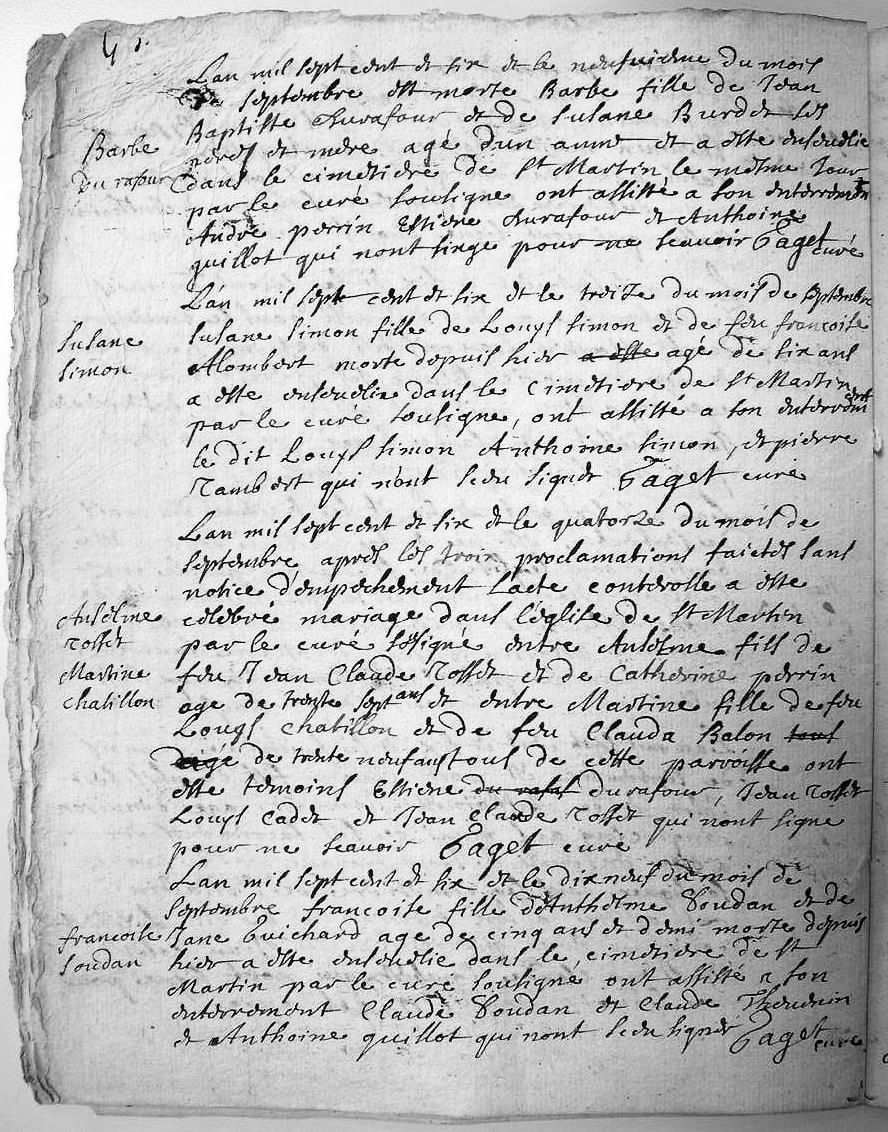 Lan mil sept cent et six et le neufuieme du mois
de septembre est morte Barbe fille de Jean
Baptiste durafour et de susane Burdet ses
Barbe
durafour
peres et mere agé dun anne et a este enseuelie
dans le cimetiere de St Martin le mesme Jour
par le curé sousigne ont assisté a son enterremen
Andre perrin Estiene durafour et Anthoine
guillot qui nont singe pour ne scauoir Paget curé
Lan mil sept cent et six et le treize du mois de septembre
susane
simon
susane simon fille de Louys simon et de feu francoise
Alombert morte depuis hier a este agé de six ans
a este enseuelie dans le cimetiere de St Martin
par le curé sousigne, ont assisté a son enterrement
le dit Louys simon Anthoine simon, et pierre
Rambert qui nont sceu signer Paget curé
Lan mil sept cent et six et le quatorze du mois de
septembre apres les trois proclamations faictes sans
notice dempechement Lacte conterolle a este
Anselme
rosset
Martine
chatillon
celebré mariage dans léglise de St Martin
par le curé sosigné entre Anselme fils de
feu Jean Claude Rosset et de Catherine perrin
age de trente sept ans et entre Martine fille de feu
Louys chatillon et de feu Clauda Balon tous
aigé de trente neuf ans tous de cette parroisse ont
este temoins Estiene du rafas durafour, Jean rosset
Louys Cadet et Jean Claude rosset qui nont signé
pour ne scauoir Paget curé
Lan mil sept cent et six et le dixneuf du mois de
septembre francoise fille dAnthelme soudan et de
francoise
soudan
Jane Guichard age de cinq ans et demi morte depuis
hier a este enseuelie dans le cimetiere de St
Martin par le curé sousigne ont assisté a son
enterrement Claude soudan et Claude Theuenin
et Anthoine guillot qui nont sceu signer Paget curé